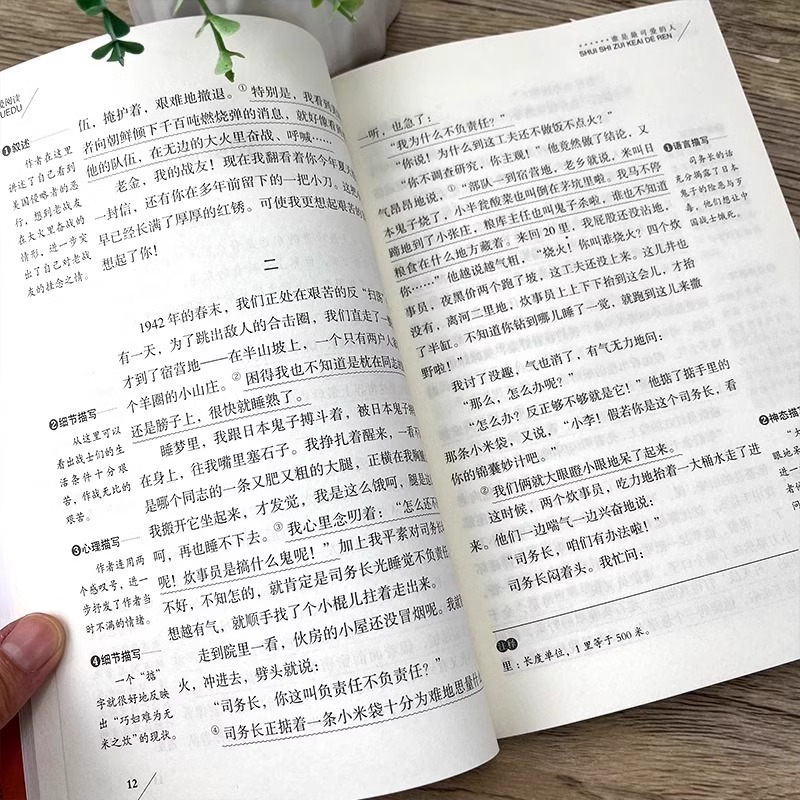 爱阅读
UEDU
伍，掩护着，艰难地撤退。①特别是，我看到
者向朝鲜倾下千百吨燃烧弹的消息，就好像看
他的队伍，在无边的大火里奋战，呼喊……
老金，我的战友！现在我翻看着你今年夏
一封信，还有你在多年前留下的一把小刀。这把
早已经长满了厚厚的红锈。可使我更想起艰苦的
想起了你！
二
1942 年的春末，我们正处在艰苦的反“扫荡
有一天，为了跳出敌人的合击圈，我们直走了一
才到了宿营地——在半山坡上，一个只有两户人
个羊圈的小山庄。②困得我也不知道是枕在同志的
还是膀子上，很快就睡熟了。
睡梦里，我跟日本鬼子搏斗着，被日本鬼子
在身上，往我嘴里塞石子。我挣扎着醒来，一看
是哪个同志的一条又肥又粗的大腿，正横在我胸
我搬开它坐起来，才发觉，我是这么饿呵，腿是这
呵，再也睡不下去。③我心里念叨着：“怎么还不
呢！炊事员是搞什么鬼呢！”加上我平素对司务长
不好，不知怎的，就肯定是司务长光睡觉不负责任
想越有气，就顺手找了个小棍儿拄着走出来。
走到院里一看，伙房的小屋还没冒烟呢。我就
火，冲进去，劈头就说：
“司务长，你这叫负责任不负责任？”
④司务长正掂着一条小米袋十分为难地思量什
❶叙述
作者在这里
讲述了自己看到
美国侵略者的恶
行，想到老战友
在大火里奋战的
情形，进一步突
出了自己对老战
友的挂念之情。
❷细节描写
从这里可以
看出战士们的生
活条件十分艰
苦，作战无比的
艰苦。
❸心理描写
作者连用两
个感叹号，进一
步抒发了作者当
时不满的情绪。
❹细节描写
一个“掂”
字就很好地反映
出“巧妇难为无
米之炊”的现状。
12
……谁是最可爱的人
SHUI SHI ZUI KEAI DE REN
一听，也急了：
“我为什么不负责任？”
“你说！为什么到这工夫还不做饭不点火？”
“你不调查研究，你主观！”他竟然做了结论，又
气昂昂地说，①“部队一到宿营地，老乡就说，米叫日
本鬼子烧了，小半瓮酸菜也叫倒在茅坑里啦。我马不停
蹄地到了小张庄，粮库主任也叫鬼子杀啦，谁也不知道
粮食在什么地方藏着。来回 20 里，我屁股还没沾地，
你……”他越说越气粗，“烧火！你叫谁烧火？四个炊
事员，夜黑价两个跑了坡，这工夫还没上来。这儿井也
没有，离河二里地，炊事员上上下下抬到这会儿，才抬
了半缸。不知道你钻到哪儿睡了一觉，就跑到这儿来撒
野啦！”
我讨了没趣，气也消了，有气无力地问：
“那么，怎么办呢？”
“怎么办？反正够不够就是它！”他掂了掂手里的
那条小米袋，又说，“小李！假若你是这个司务长，看
你的锦囊妙计吧。”
②我们俩就大眼瞪小眼地呆了起来。
这时候，两个炊事员，吃力地抬着一大桶水走了进
来。他们一边喘气一边兴奋地说：
“司务长，咱们有办法啦！”
司务长闷着头。我忙问：
注释
里：长度单位，1 里等于 500 米。
❶语言描写
司务长的话
充分揭露了日本
鬼子的险恶与歹
毒，他们想让中
国战士饿死。
❷神态描